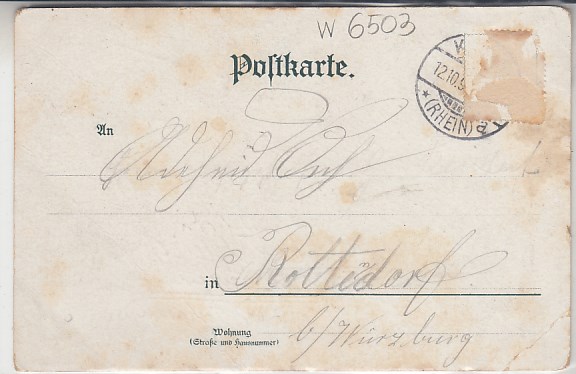 W 6503
Postkarte.
12.10.9
(RHEIN)
An
in Rottedorf
Wohnung
(Straße und Hausnummer)
b/Würzburg